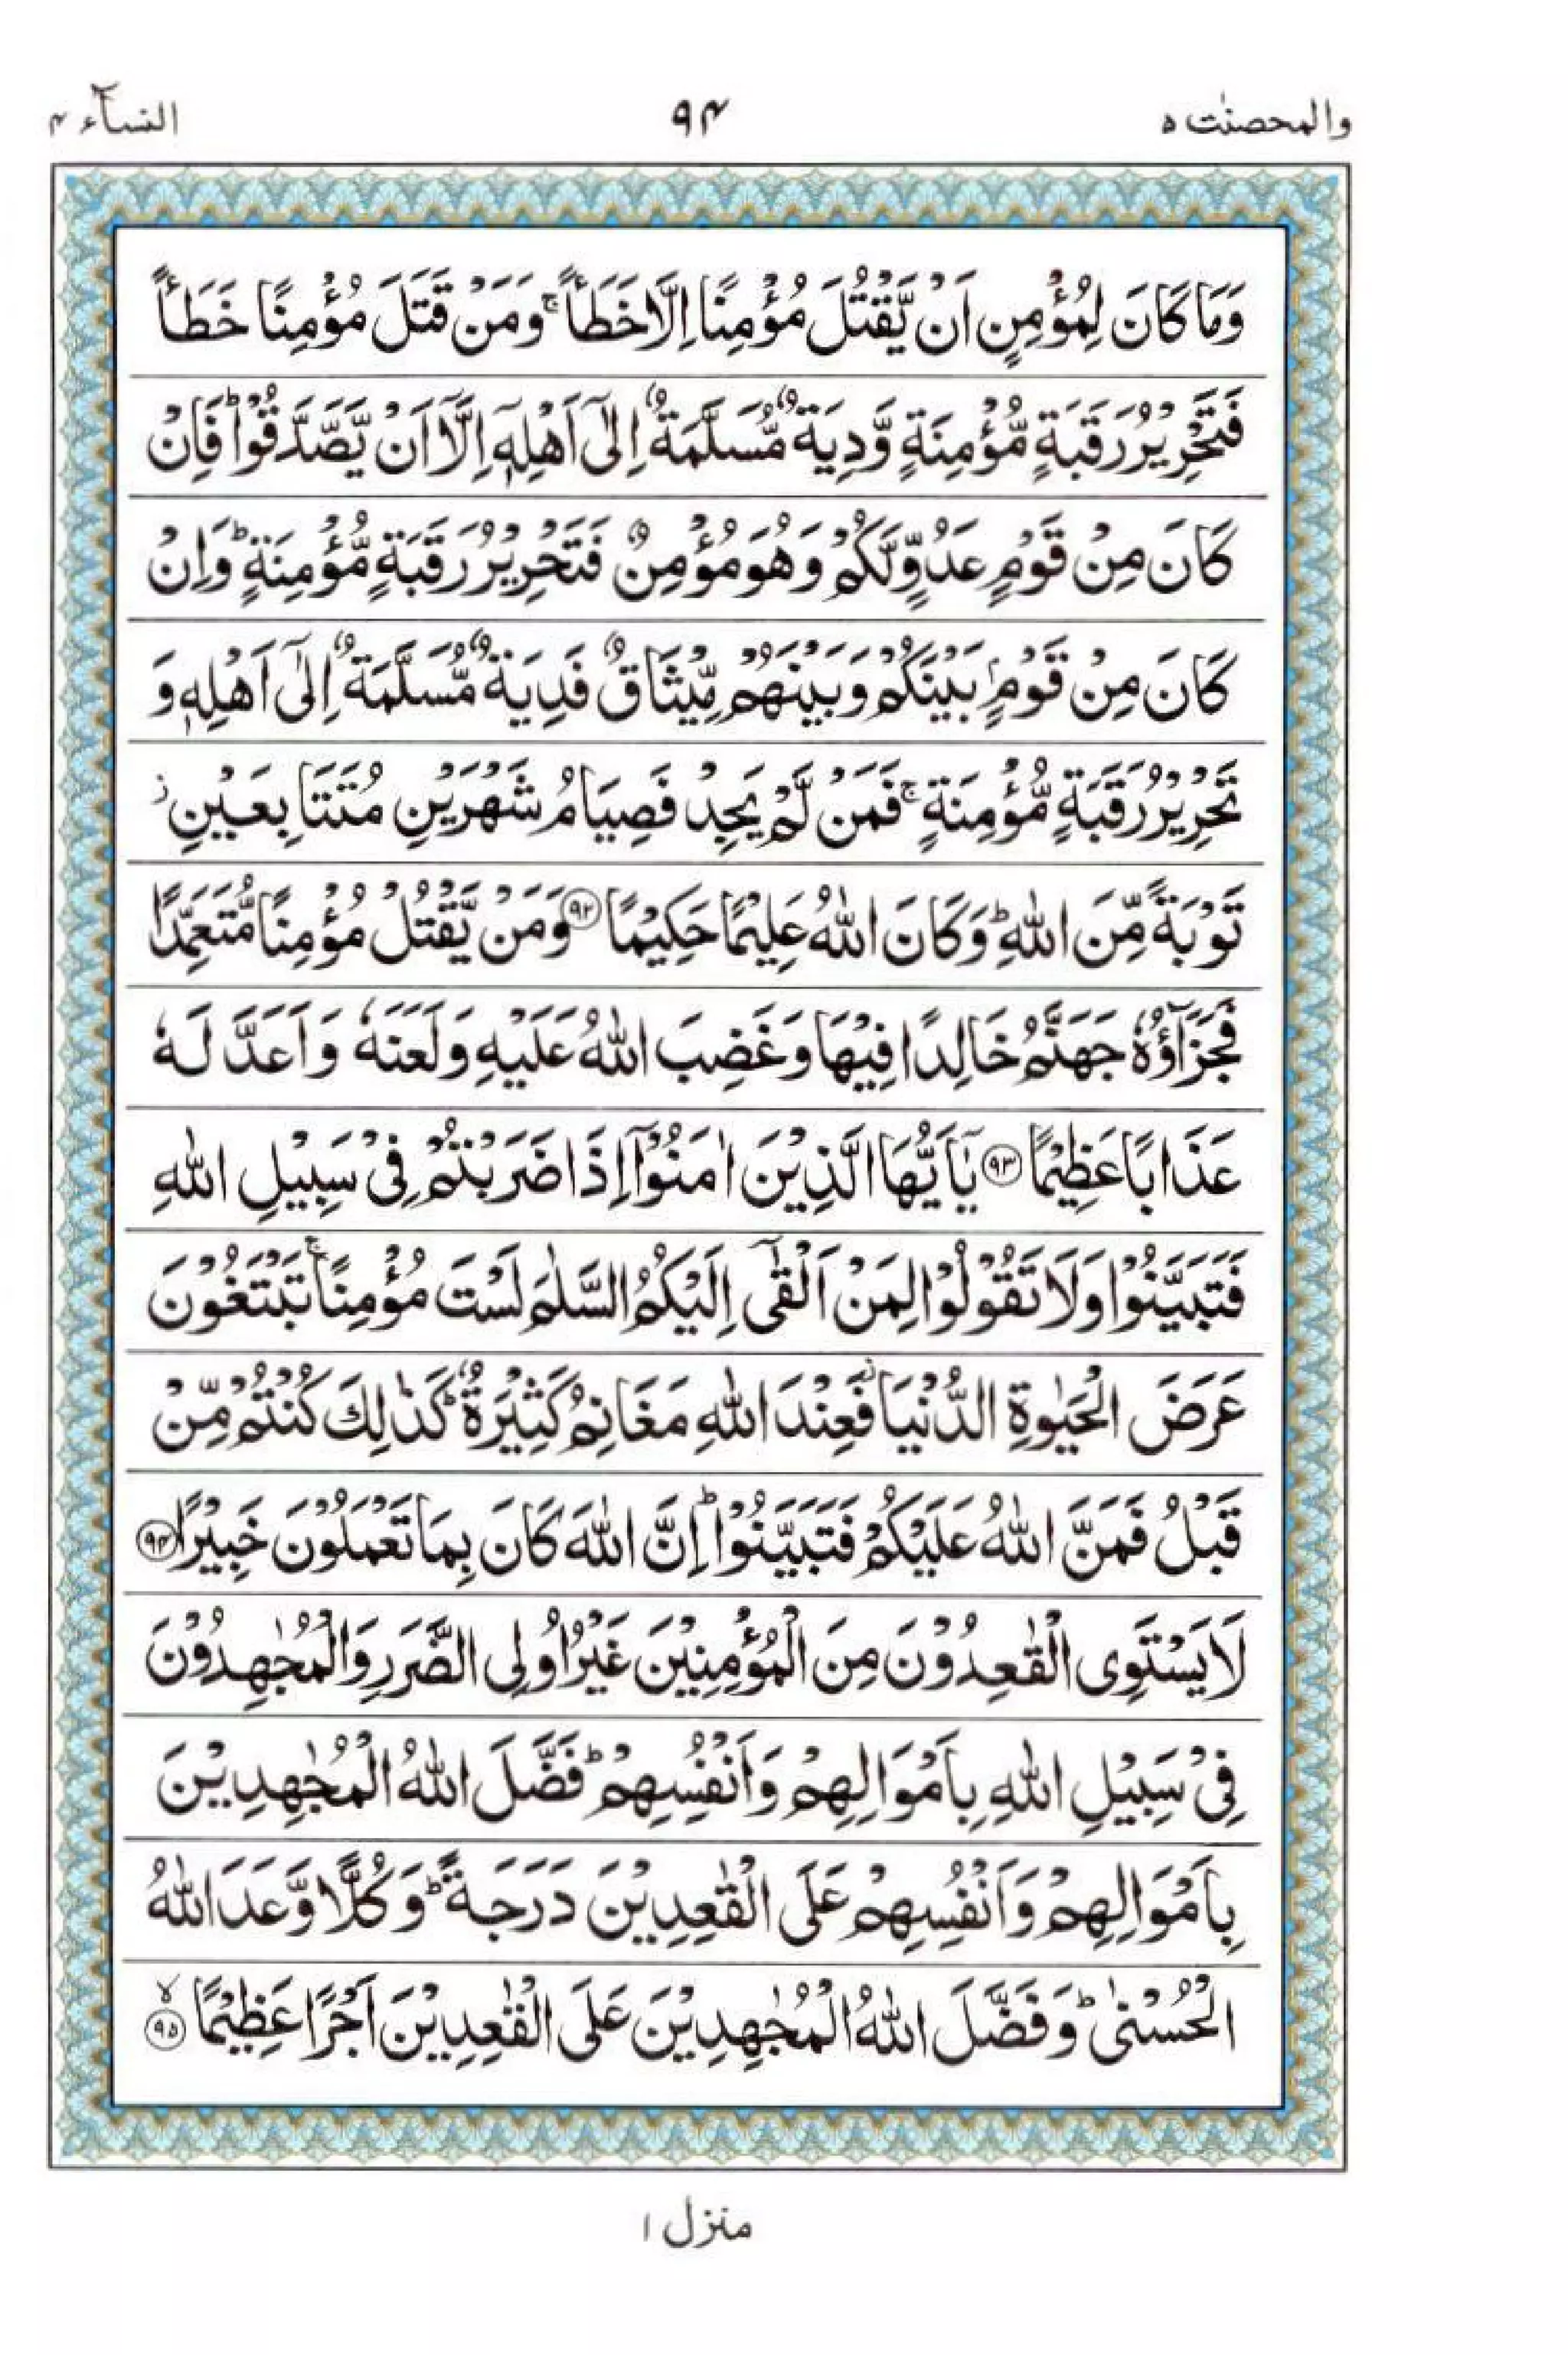 والمحصنٰت ٥ ٩۴ النسآء ۴
وَمَا كَانَ لِمُؤْمِنٍ اَنْ يَّقْتُلَ مُؤْمِنًا اِلَّا خَطَـًٔا ۚ وَمَنْ قَتَلَ مُؤْمِنًا خَطَـًٔا
فَتَحْرِيْرُ رَقَبَةٍ مُّؤْمِنَةٍ وَّدِيَةٌ مُّسَلَّمَةٌ اِلٰٓى اَهْلِهٖٓ اِلَّآ اَنْ يَّصَّدَّقُوْا ؕ فَاِنْ
كَانَ مِنْ قَوْمٍ عَدُوٍّ لَّكُمْ وَهُوَ مُؤْمِنٌ فَتَحْرِيْرُ رَقَبَةٍ مُّؤْمِنَةٍ ؕ وَاِنْ
كَانَ مِنْ قَوْمٍۭ بَيْنَكُمْ وَبَيْنَهُمْ مِّيْثَاقٌ فَدِيَةٌ مُّسَلَّمَةٌ اِلٰٓى اَهْلِهٖ وَ
تَحْرِيْرُ رَقَبَةٍ مُّؤْمِنَةٍ ۚ فَمَنْ لَّمْ يَجِدْ فَصِيَامُ شَهْرَيْنِ مُتَتَابِعَيْنِ ز
تَوْبَةً مِّنَ اللّٰهِ ؕ وَكَانَ اللّٰهُ عَلِيْمًا حَكِيْمًا ﴿٩٢﴾ وَمَنْ يَّقْتُلْ مُؤْمِنًا مُّتَعَمِّدًا
فَجَزَآؤُهٗ جَهَنَّمُ خَالِدًا فِيْهَا وَغَضِبَ اللّٰهُ عَلَيْهِ وَلَعَنَهٗ وَاَعَدَّ لَهٗ
عَذَابًا عَظِيْمًا ﴿٩٣﴾ يٰٓاَيُّهَا الَّذِيْنَ اٰمَنُوْٓا اِذَا ضَرَبْتُمْ فِيْ سَبِيْلِ اللّٰهِ
فَتَبَيَّنُوْا وَلَا تَقُوْلُوْا لِمَنْ اَلْقٰٓى اِلَيْكُمُ السَّلٰمَ لَسْتَ مُؤْمِنًا ۚ تَبْتَغُوْنَ
عَرَضَ الْحَيٰوةِ الدُّنْيَا ز فَعِنْدَ اللّٰهِ مَغَانِمُ كَثِيْرَةٌ ؕ كَذٰلِكَ كُنْتُمْ مِّنْ
قَبْلُ فَمَنَّ اللّٰهُ عَلَيْكُمْ فَتَبَيَّنُوْا ؕ اِنَّ اللّٰهَ كَانَ بِمَا تَعْمَلُوْنَ خَبِيْرًا ﴿٩۴﴾
لَا يَسْتَوِى الْقٰعِدُوْنَ مِنَ الْمُؤْمِنِيْنَ غَيْرُ اُولِى الضَّرَرِ وَالْمُجٰهِدُوْنَ
فِيْ سَبِيْلِ اللّٰهِ بِاَمْوَالِهِمْ وَاَنْفُسِهِمْ ؕ فَضَّلَ اللّٰهُ الْمُجٰهِدِيْنَ
بِاَمْوَالِهِمْ وَاَنْفُسِهِمْ عَلَى الْقٰعِدِيْنَ دَرَجَةً ؕ وَكُلًّا وَّعَدَ اللّٰهُ
الْحُسْنٰى ؕ وَفَضَّلَ اللّٰهُ الْمُجٰهِدِيْنَ عَلَى الْقٰعِدِيْنَ اَجْرًا عَظِيْمًا ۙ﴿٩٥﴾
منزل ١